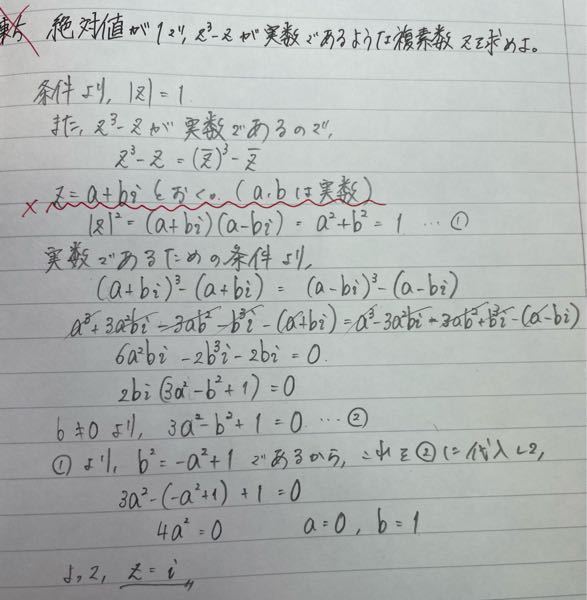 絶対値が1で, z³-zが実数であるような複素数zを求めよ。
条件より, |z|=1
また, z³-zが実数であるので,
z³-z=(z̄)³-z̄
× z=a+biとおく。(a.bは実数)
|z|²=(a+bi)(a-bi)=a²+b²=1 … ①
実数であるための条件より,
(a+bi)³-(a+bi)=(a-bi)³-(a-bi)
a³+3a²bi-3ab²-b³i-(a+bi)=a³-3a²bi-3ab²+b³i-(a-bi)
6a²bi-2b³i-2bi=0
2bi(3a²-b²+1)=0
b≠0より, 3a²-b²+1=0 … ②
①より, b²=-a²+1であるから, これを②に代入して,
3a²-(-a²+1)+1=0
4a²=0 a=0, b=1
よって, z=i